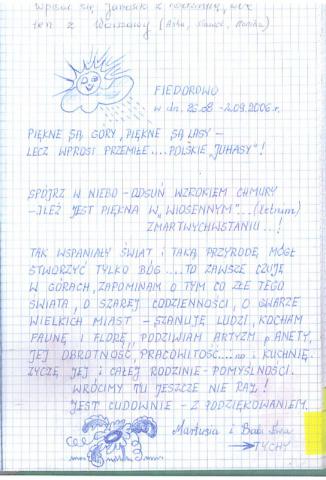 Wpisał się Janosik z rodziną, też
ten z Warszawy (Aśka, Sławek, Monika)
FIEDOROWO
w dn. 25.08 - 2.09.2006 r.
PIĘKNE SĄ GÓRY, PIĘKNE SĄ LASY –
LECZ WPROST PRZEMIŁE....POLSKIE „JUHASY"!
SPÓJRZ W NIEBO - ODSUŃ WZROKIEM CHMURY
- ILEŻ JEST PIĘKNA W „WIOSENNYM"...(letnim)
ZMARTWYCHWSTANIU...!
TAK WSPANIAŁY ŚWIAT i TAKĄ PRZYRODĘ MÓGŁ
STWORZYĆ TYLKO BÓG....TO ZAWSZE CZUJĘ
W GÓRACH, ZAPOMINAM O TYM CO ZŁE TEGO
ŚWIATA, O SZAREJ CODZIENNOŚCI, O GWARZE
WIELKICH MIAST - SZANUJĘ LUDZI, KOCHAM
FAUNĘ I FLORĘ, PODZIWIAM ARTYZM p. ANETY,
JEJ OBROTNOŚĆ, PRACOWITOŚĆ...no i KUCHNIĘ.
ŻYCZĘ JEJ i CAŁEJ RODZINIE - POMYŚLNOŚCI.
WRÓCIMY TU JESZCZE NIE RAZ!
JEST CUDOWNIE - Z PODZIĘKOWANIEM.
Martusia i Babi
→ TYCHY